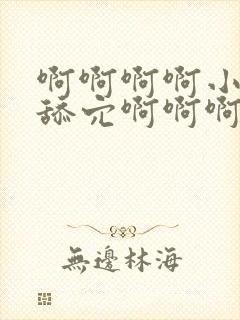 啊啊啊啊小
舔穴啊啊啊
無邊林海